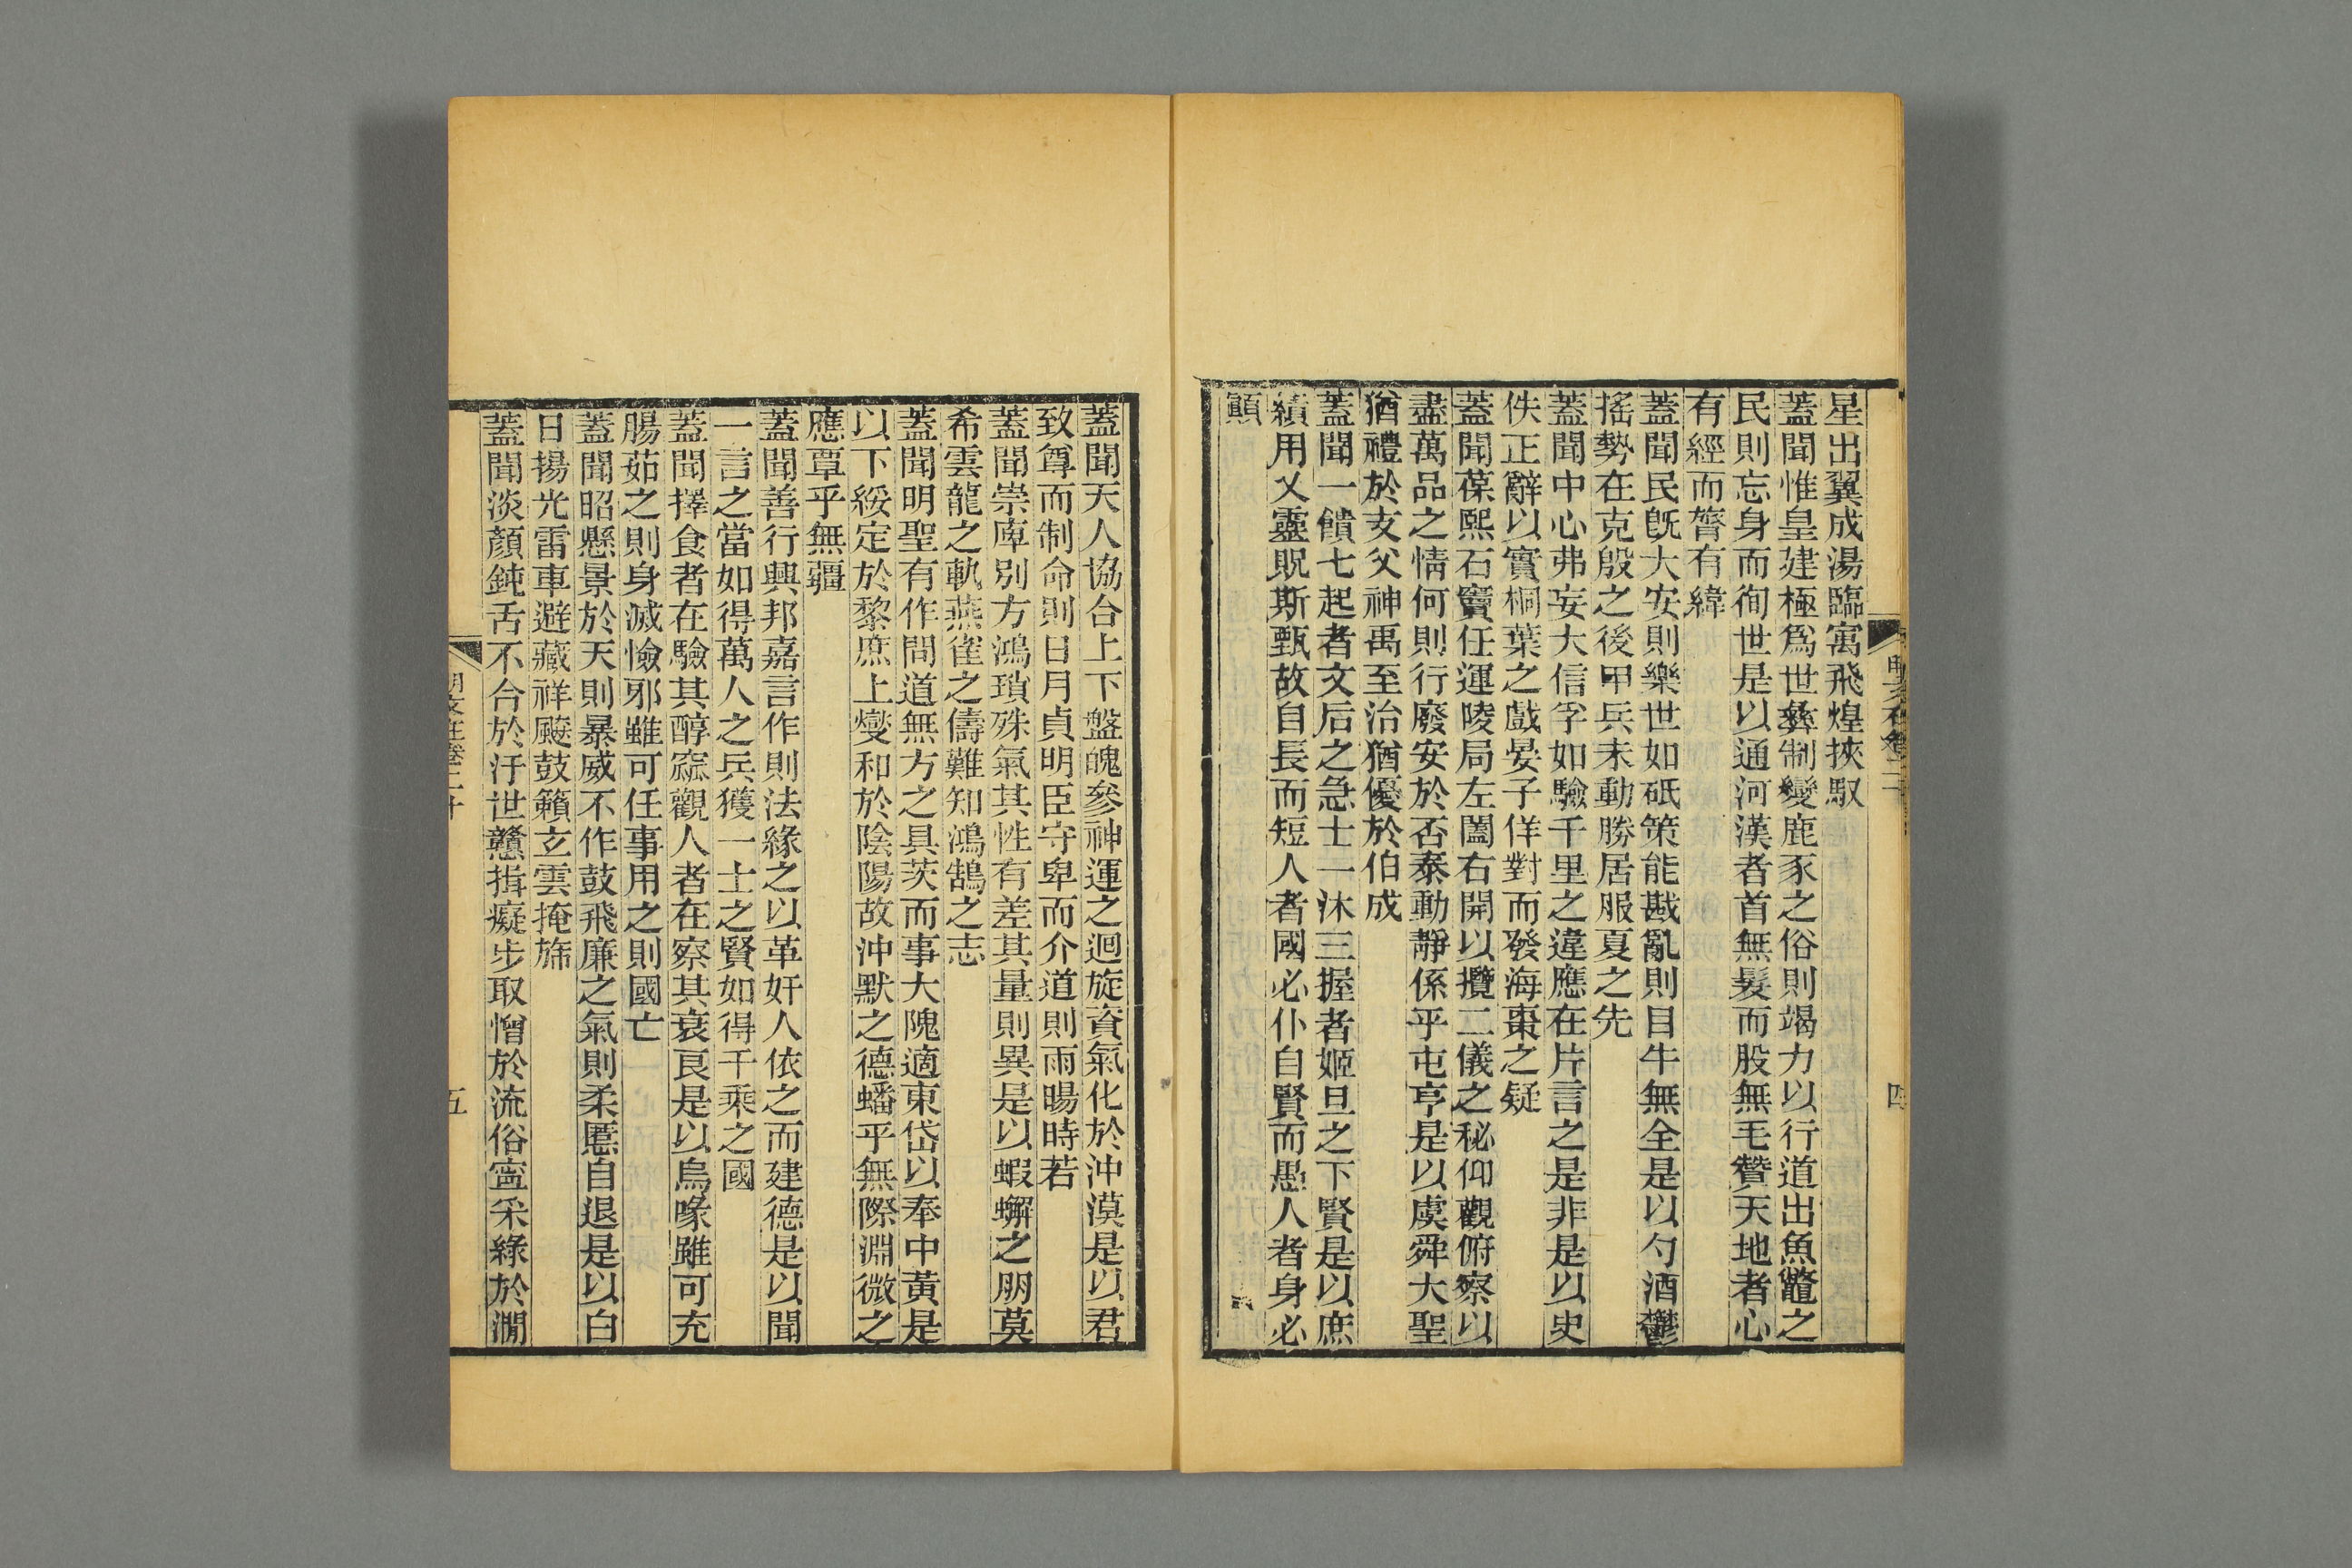 星出翼成湯臨寓飛煌挾馭
蓋聞惟皇建極爲世彝制變鹿豕之俗則竭力以行道出魚鼈之
民則忘身而徇世是以通河漢者首無髮而股無毛贊天地者心
有經而膂有緯
蓋聞民旣大安則樂世如砥策能戡亂則目牛無全是以勺酒鬱
搖勢在克殷之後甲兵未動勝居服夏之先
蓋聞中心弗妄大信孚如驗千里之違應在片言之是非是以史
佚正辭以實桐葉之戲晏子佯對而發海棗之疑
蓋聞葆熙石竇任運陵局左闔右開以攬二儀之秘仰觀俯察以
盡萬品之情何則行廢安於否泰動靜係乎屯亨是以虞舜大聖
猶禮於支父神禹至治猶優於伯成
蓋聞一饋七起者文后之急士一沐三握者姬旦之下賢是以庶
績用乂靈貺斯甄故自長而短人者國必仆自賢而愚人者身必
顚
四
蓋聞天人協合上下盤魄參神運之迴旋資氣化於沖漠是以君
致尊而制命則日月貞明臣守卑而介道則雨暘時若
蓋聞崇庳別方鴻瑣殊氣其性有差其量則異是以蝦蠏之朋莫
希雲龍之軌燕雀之儔難知鴻鵠之志
蓋聞明聖有作問道無方之具茨而事大隗適東岱以奉中黃是
以下綏定於黎庶上燮和於陰陽故沖默之德蟠乎無際淵微之
應覃乎無疆
蓋聞善行興邦嘉言作則法緣之以革奸人依之而建德是以聞
一言之當如得萬人之兵獲一士之賢如得千乘之國
蓋聞擇食者在驗其醇窳觀人者在察其衰良是以烏喙雖可充
腸茹之則身滅憸邪雖可任事用之則國亡
蓋聞昭懸景於天則暴威不作鼓飛廉之氣則柔慝自退是以白
日揚光雷車避藏祥飈鼓籟玄雲掩旆
蓋聞淡顏鈍舌不合於汙世戇揖癡步取憎於流俗寍采綠於澗
明文在卷二十
五